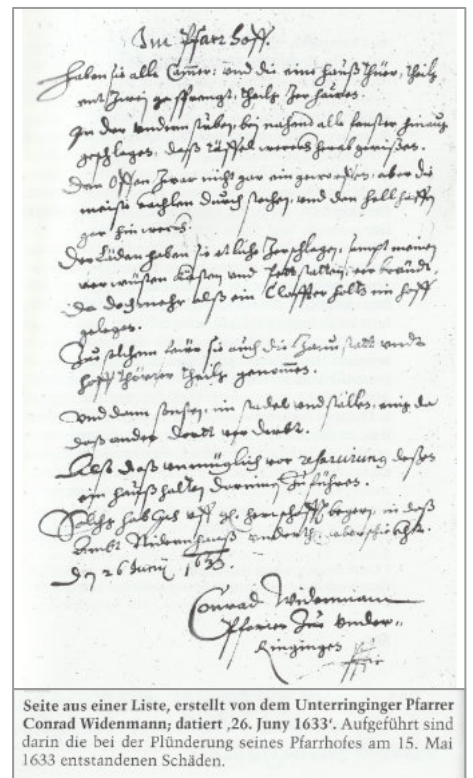 Im Pfarrhoff.
Haben sie alle Camer: und die eine hauß thüer, theilß
entzwei gesprengt, theilß zerhauwen.
In der undern stuben, bei nahend alle fenster hinauß
geschlagen, daß
Den Offen zwar nicht gar eingeworffen, aber die
meiste kachlen durch stochen, und den hellhaffen
gar hinweckh.
Der Läden haben sie etliche zerschlagen, sampt meinen
kästen und bettstatten, verbrändt,
da doch mehr alß ein Claffter holtz im hoff
gelegen.
Zu solchem auch die
hoff theilß genommen.
Und dann im stadel und ställen, einß da
daß ander dortt verderbt.
Alß daß unmüglich vor reparirung deßen
ein haußhalten darinnen zu führen.
Solchs hab Ich uff gl. herrschafft begern, in daß
Ambt
Den 26 Junÿ 1633.
Conrad Widenmann
Pfarrer zue Under-
Ringingen
Seite aus einer Liste, erstellt von dem Unterringinger Pfarrer
Conrad Widenmann; datiert ‚26. Juny 1633‘. Aufgeführt sind
darin die bei der Plünderung seines Pfarrhofes am 15. Mai
1633 entstandenen Schäden.